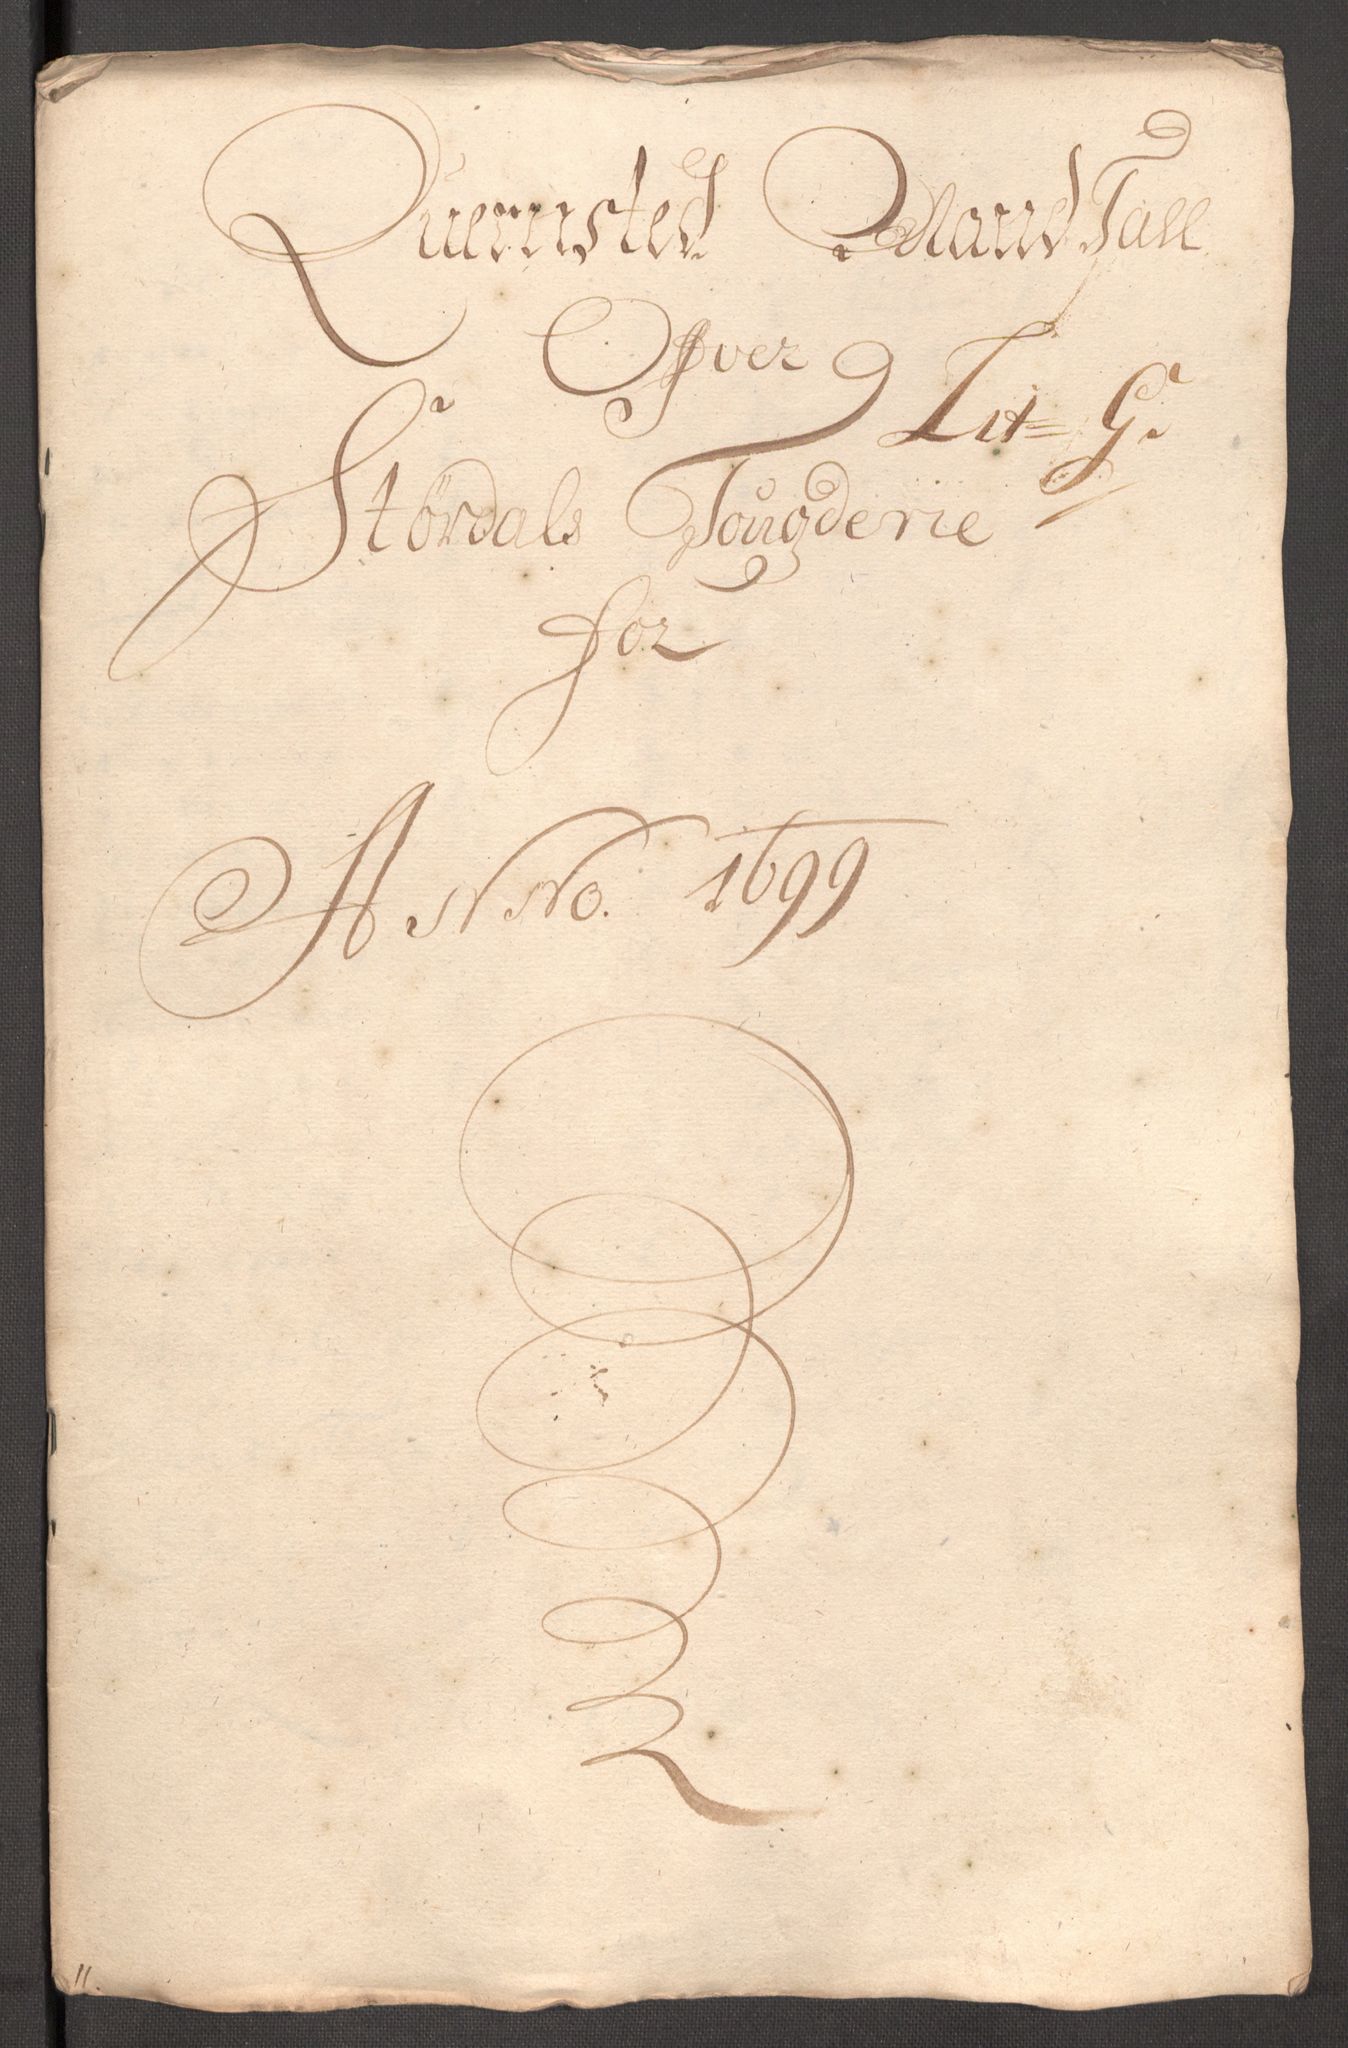 Quernsted Mand Tall
Ofver
Lit= G.
Størdals Fougderie
for
ANNO. 1699
11.